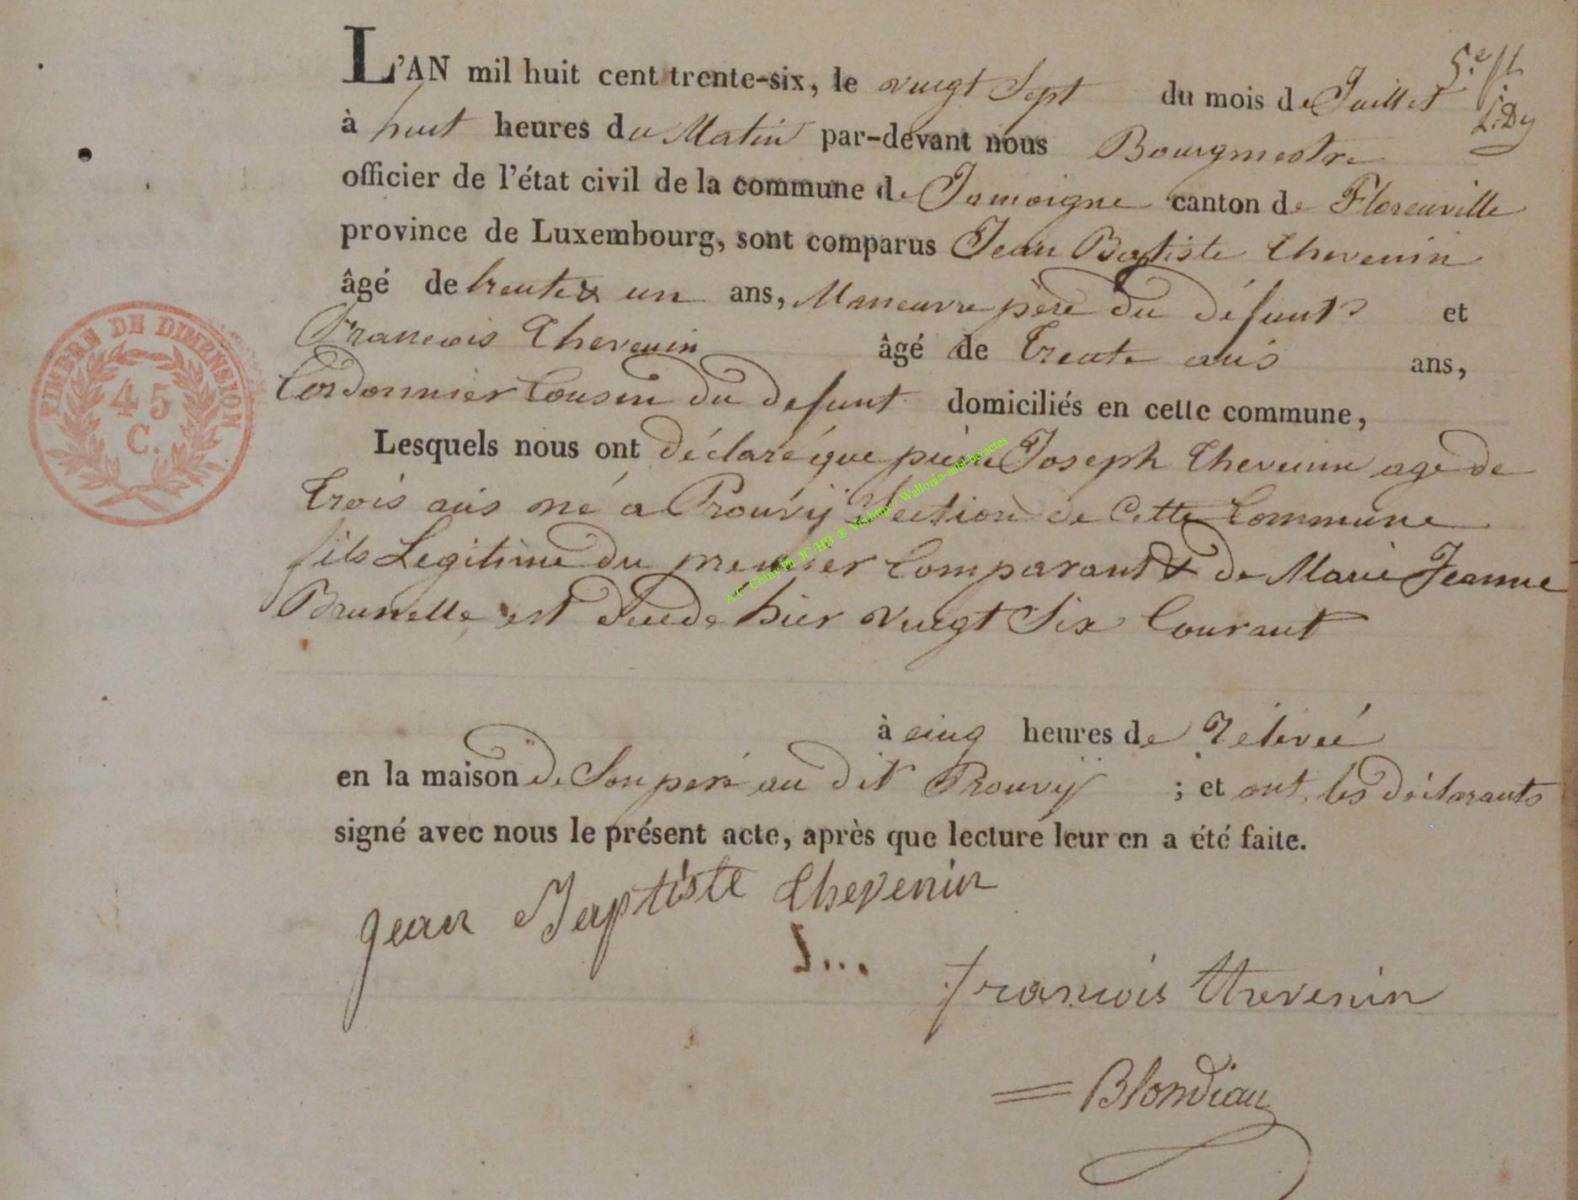 L'AN mil huit cent trente-six, le vingt Sept du mois de Juillet
à huit heures du Matin par-devant nous Bourgmestre
officier de l'état civil de la commune de Jamoigne canton de Florenville
province de Luxembourg, sont comparus Jean Baptiste Thevenin
âgé de trente & un ans, Maneuvre père du défunt et
Francois Thevenin âgé de Trente ans ans,
Cordonnier Cousin du defunt domiciliés en cette commune,
Lesquels nous ont déclaré que pierre Joseph Thevenin agé de
Trois ans né a Prouvÿ Section de Cette Commune
fils Legitime du premier Comparant & de Marie Jeanne
Brunelle est de hier vingt Six Courant
à cinq heures de rélévée
en la maison de Son peré au dit Prouvÿ ; et ont les déclarants
signé avec nous le présent acte, après que lecture leur en a été faite.
jean Baptiste thevenin
francois thevenin
Blondiau
TIMBRE DE DIMENSION
45
C.